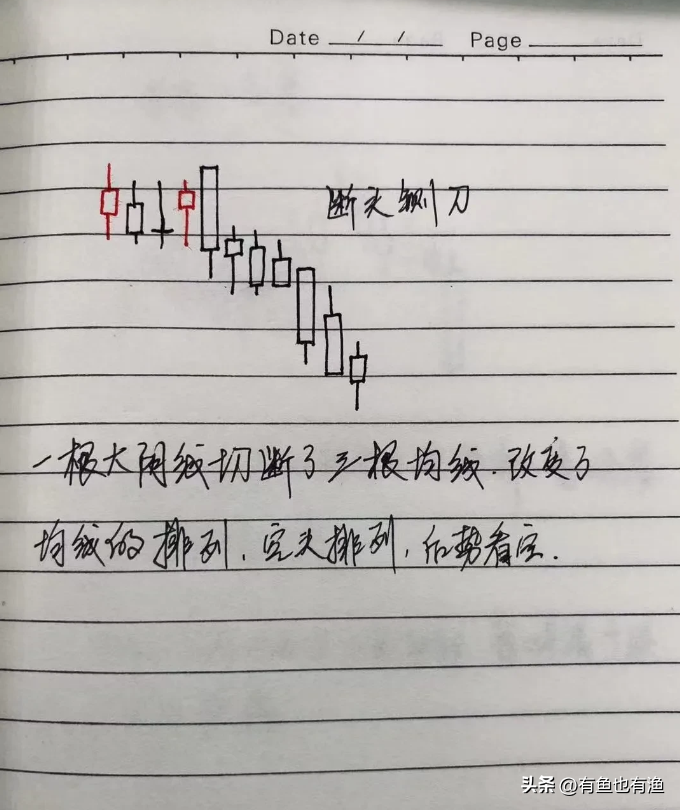 Date / / Page
断头铡刀
一根大阴线切断了三根均线.改变了
均线的排列,空头排列,后势看空.
头条 @有鱼也有渔